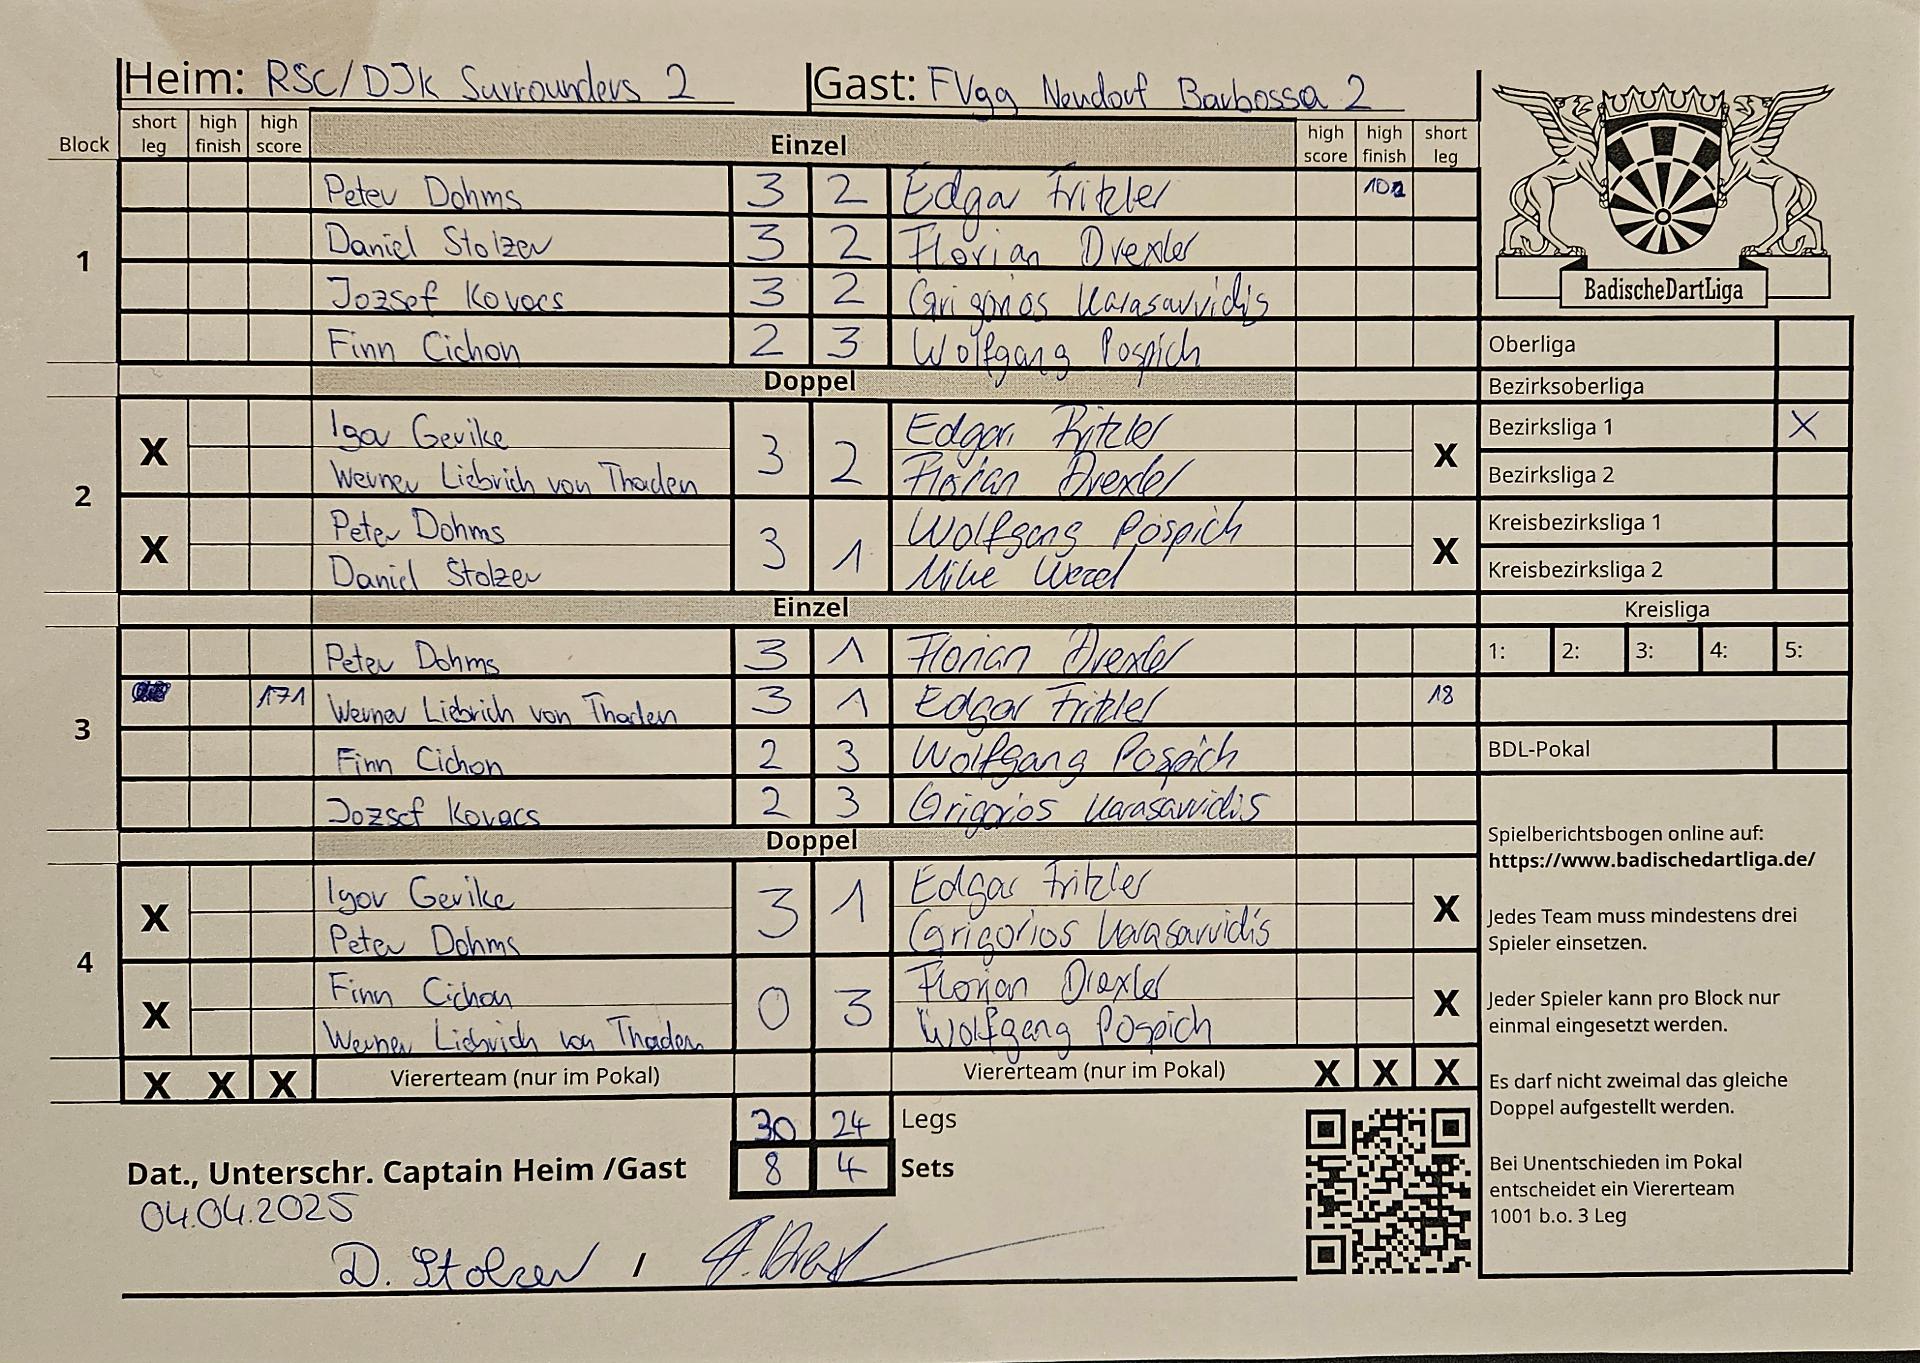 Heim: RSC/DJK Surrounders 2 Gast: FVgg Neudorf Barbossa 2
Block short leg high finish high score Einzel high score high finish short leg
1
Peter Dohms 3 2 Edgar Fritzler
Daniel Stolzer 3 2 Florian Drexler
Jozsef Kovacs 3 2 Grigorios Karasavvidis
Finn Cichon 2 3 Wolfgang Pospich
Doppel
2
X Igor Gerike 3 2 Edgar Fritzler X
Werner Liebrich von Thaden Florian Drexler
X Peter Dohms 3 1 Wolfgang Pospich X
Daniel Stolzer Mike
Einzel
3
Peter Dohms 3 1 Florian Drexler
171 Werner Liebrich von Thaden 3 1 Edgar Fritzler 18
Finn Cichon 2 3 Wolfgang Pospich
Jozsef Kovacs 2 3 Grigorios Karasavvidis
Doppel
4
X Igor Gerike 3 1 Edgar Fritzler X
Peter Dohms Grigorios Karasavvidis
X Finn Cichon 0 3 Florian Drexler X
Werner Liebrich von Thaden Wolfgang Pospich
X X X Viererteam (nur im Pokal) Viererteam (nur im Pokal) X X X
30 24 Legs
8 4 Sets
Dat., Unterschr. Captain Heim /Gast
04.04.2025
D. Stolzer /
BadischeDartLiga
Oberliga
Bezirksoberliga
Bezirksliga 1 X
Bezirksliga 2
Kreisbezirksliga 1
Kreisbezirksliga 2
Kreisliga
1: 2: 3: 4: 5:
BDL-Pokal
Spielberichtsbogen online auf:
https://www.badischedartliga.de/
Jedes Team muss mindestens drei
Spieler einsetzen.
Jeder Spieler kann pro Block nur
einmal eingesetzt werden.
Es darf nicht zweimal das gleiche
Doppel aufgestellt werden.
Bei Unentschieden im Pokal
entscheidet ein Viererteam
1001 b.o. 3 Leg